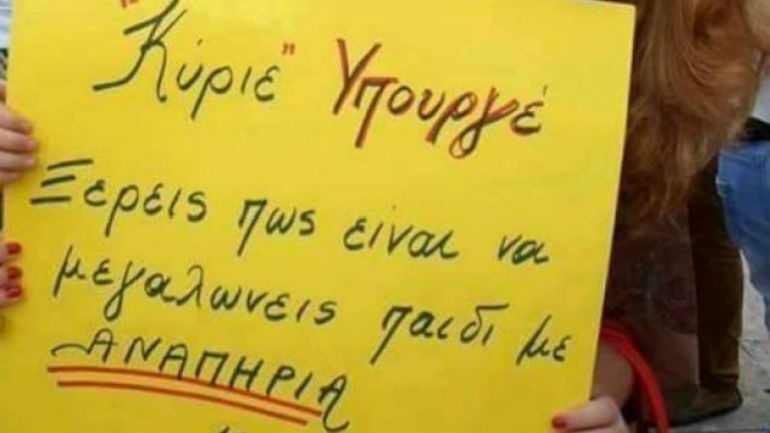 "Κύριε" Υπουργέ
Ξερεις πως ειναι να
μεγαλωνεις παιδι με
ΑΝΑΠΗΡΙΑ